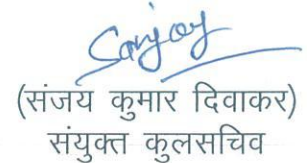 Sanjoy
(संजय कुमार दिवाकर)
संयुक्त कुलसचिव